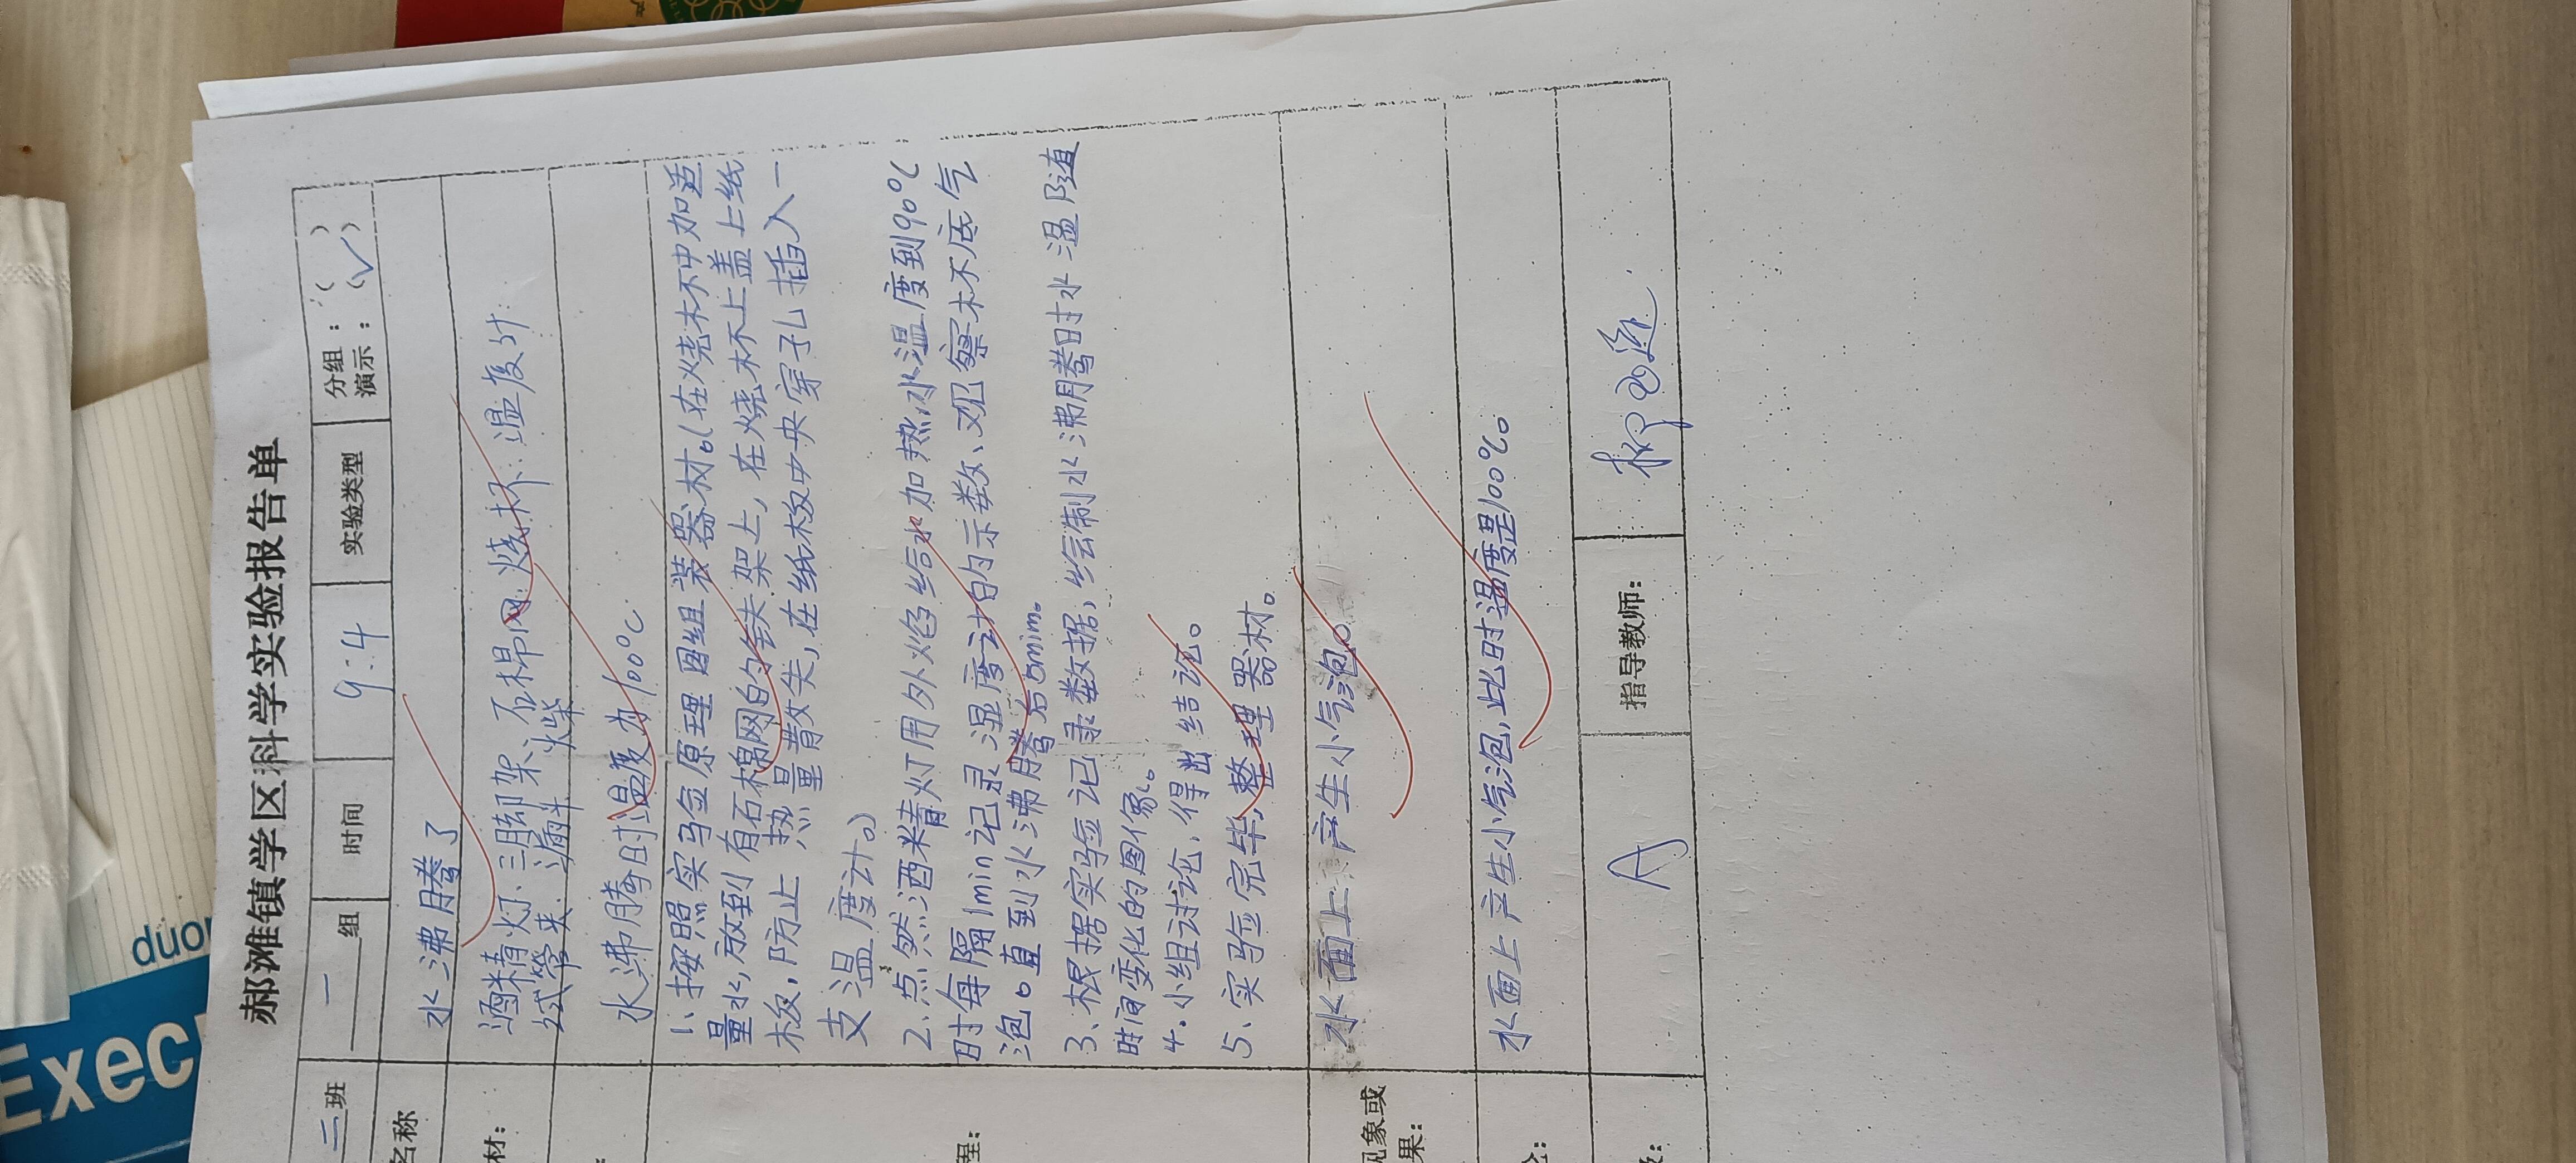 郝滩镇学区科学实验报告单
二 班 一 组 时间 9:4 实验类型 分组：( )
演示：(√)
名称 水沸腾了
材： 酒精灯.三脚架.石棉网.烧杯.温度计.
试管夹.漏斗.火柴
水沸腾时温度为100℃
程： 1、按照实验原理图组装器材。(在烧杯中加适
量水,放到有石棉网的铁架上,在烧杯上盖上纸
板,防止热量散失,在纸板中央穿孔插入一
支温度计。)
2、点然酒精灯用外焰给水加热水温度到90℃
时每隔1min记录湿度计的示数、观察杯底气
泡。直到水沸腾后5mim。
3、根据实验记录数据,绘制水沸腾时水温随
时间变化的图像。
4.小组讨论,得出结论。
5、实验完毕,整理器材。
见象或
果： 水面上产生小气泡。
论： 水面上产生小气泡,此时温度是100℃。
A 指导教师：
Exec
duo